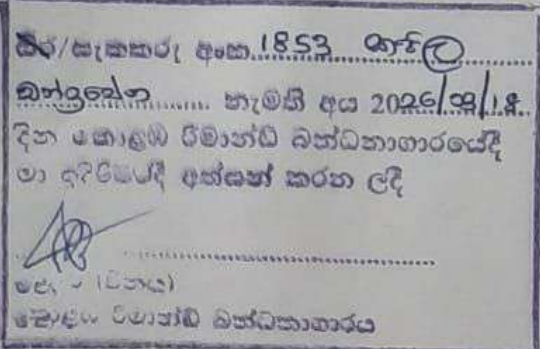 සිර/සැකකරු අංක 1853 කපිල
චන්ද්‍රසේන නැමති අය 2026/02/18
දින කොළඹ රිමාන්ඩ් බන්ධනාගාරයේදී
මා ඉදිරිපිටදී අත්සන් කරන ලදී
(විනය)
කොළඹ රිමාන්ඩ් බන්ධනාගාරය